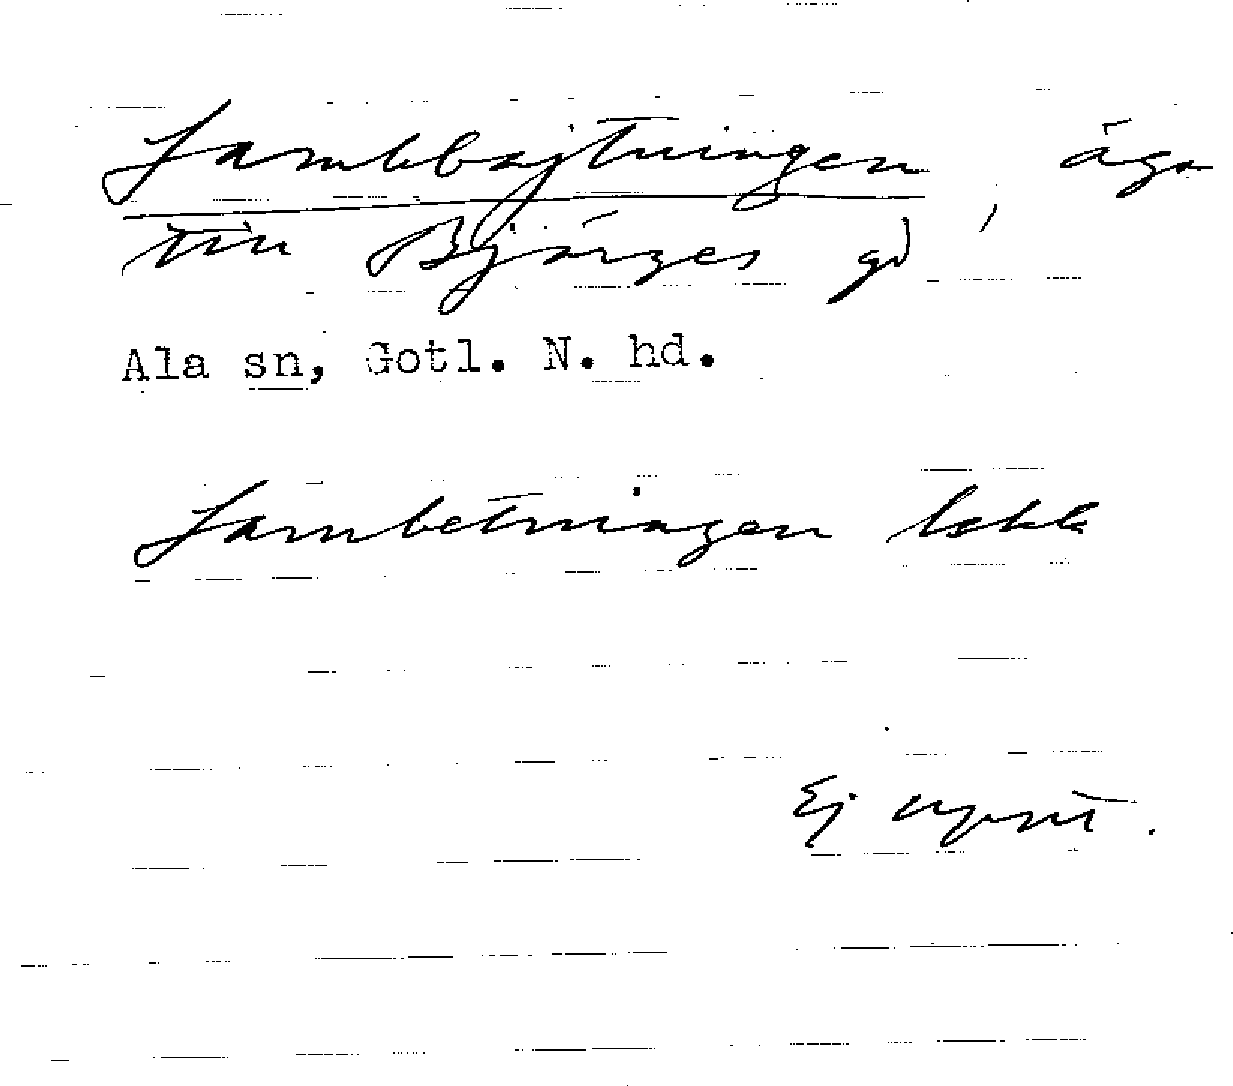 Lambbajtningen, äga
till Bjärges gd
Ala sn, Gotl. N. hd.
Lambetningen
Ej uppm.